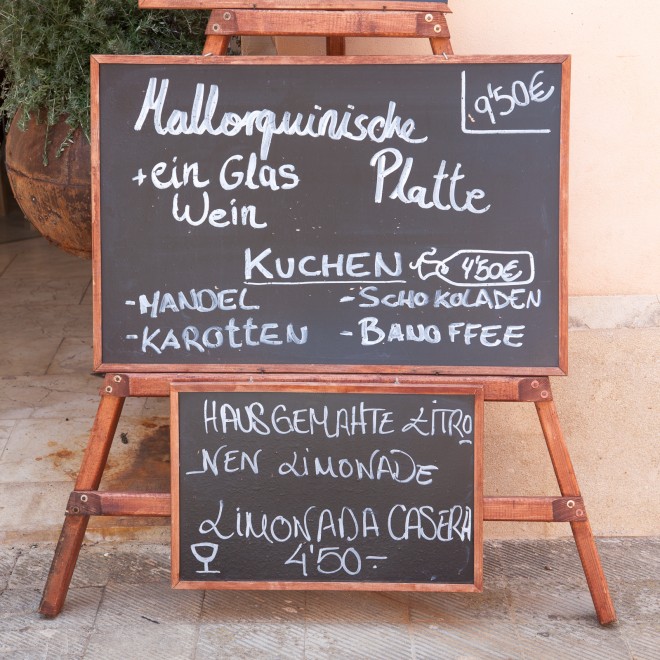 Mallorquinische 9'50€
+ ein Glas Platte
Wein
KUCHEN 4'50€
-MANDEL -SCHOKOLADEN
-KAROTTEN -BANOFFEE
HAUSGEMAHTE LITRO
_NEN LIMONADE
LIMONADA CASERA
4'50-